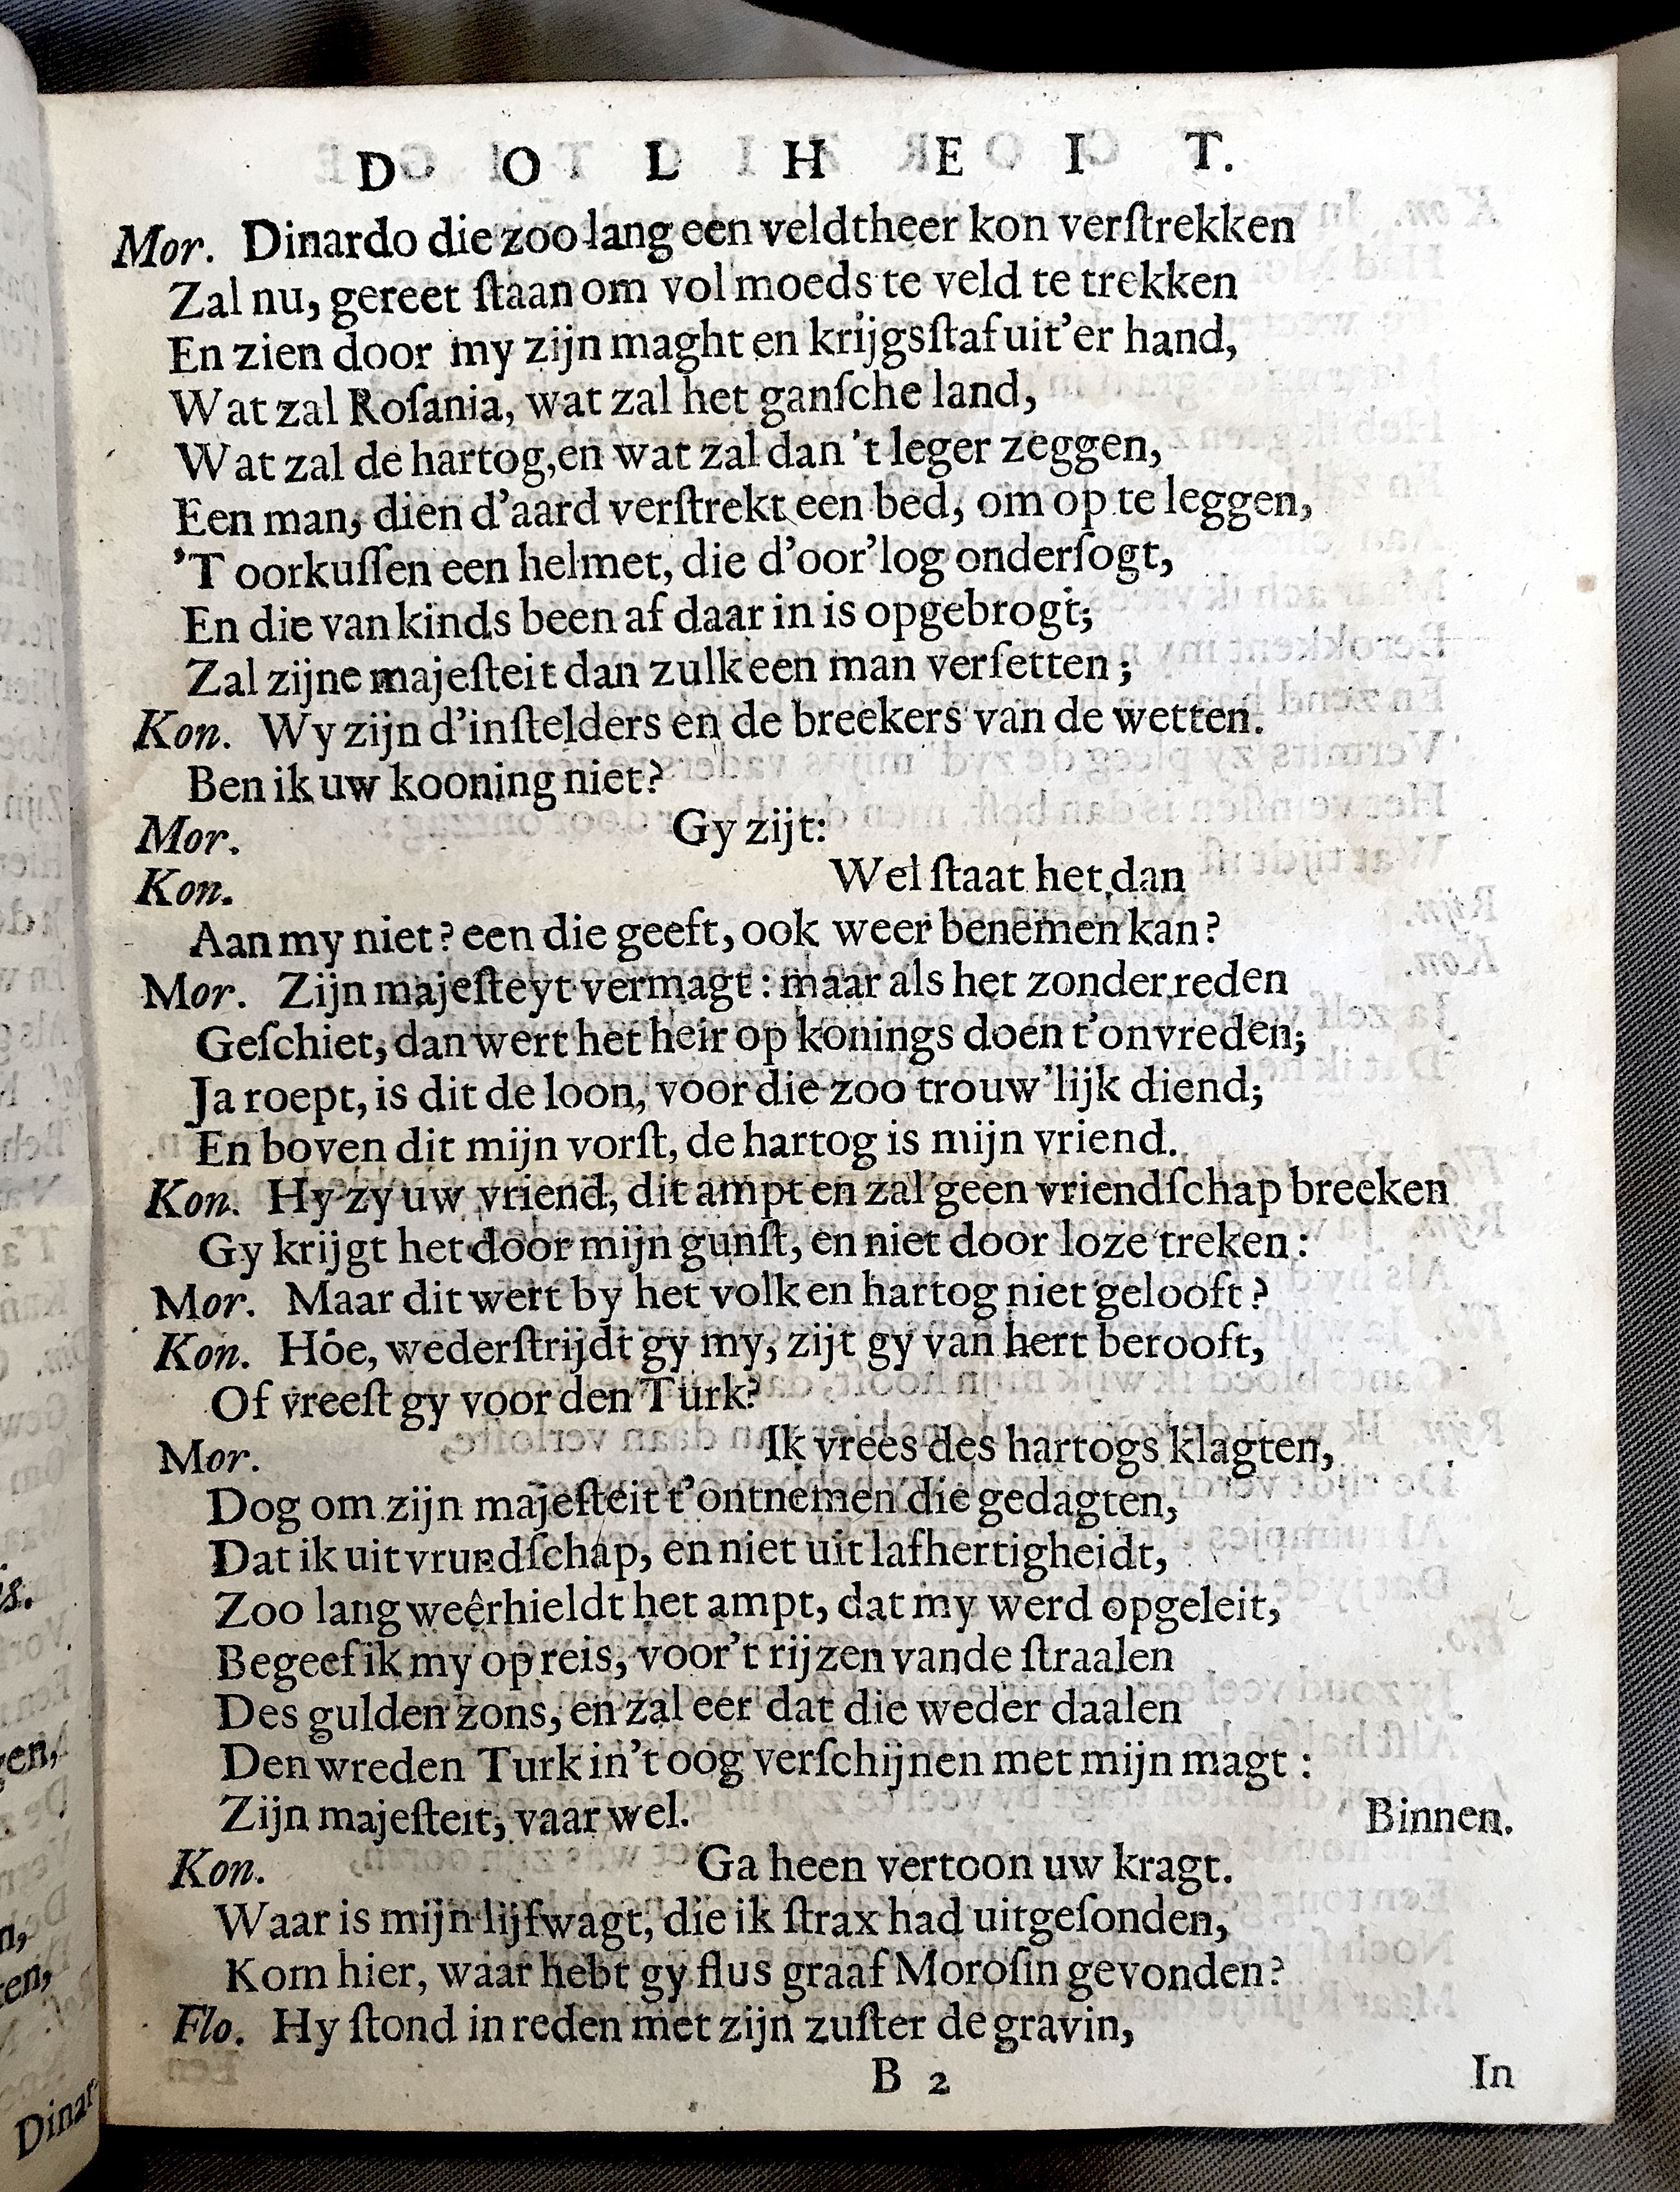 DOLHEIT.
Mor. Dinardo die zoo lang een veldtheer kon verſtrekken
Zal nu, gereet ſtaan om vol moeds te veld te trekken
En zien door my zijn maght en krijgsſtaf uit'er hand,
Wat zal Roſania, wat zal het ganſche land,
Wat zal de hartog, en wat zal dan 't leger zeggen,
Een man, dien d'aard verſtrekt een bed, om op te leggen,
'T oorkuſſen een helmet, die d'oor'log onderſogt,
En die van kinds been af daar in is opgebrogt;
Zal zijne majeſteit dan zulk een man verſetten;
Kon. Wy zijn d'inſtelders en de breekers van de wetten.
Ben ik uw kooning niet?
Mor. Gy zijt:
Kon. Wel ſtaat het dan
Aan my niet? een die geeft, ook weer benemen kan?
Mor. Zijn majeſteyt vermagt: maar als het zonder reden
Geſchiet, dan wert het heir op konings doen t'onvreden;
Ja roept, is dit de loon, voor die zoo trouw'lijk diend;
En boven dit mijn vorſt, de hartog is mijn vriend.
Kon. Hy zy uw vriend, dit ampt en zal geen vriendſchap breeken
Gy krijgt het door mijn gunſt, en niet door loze treken:
Mor. Maar dit wert by het volk en hartog niet gelooft?
Kon. Hoe, wederſtrijdt gy my, zijt gy van hert berooft,
Of vreeſt gy voor den Turk?
Mor. Ik vrees des hartogs klagten,
Dog om zijn majeſteit t'ontnemen die gedagten,
Dat ik uit vrundſchap, en niet uit lafhertigheidt,
Zoo lang weêrhieldt het ampt, dat my werd opgeleit,
Begeef ik my op reis, voor't rijzen vande ſtraalen
Des gulden zons, en zal eer dat die weder daalen
Den wreden Turk in't oog verſchijnen met mijn magt:
Zijn majeſteit, vaar wel. Binnen.
Kon. Ga heen vertoon uw kragt.
Waar is mijn lijfwagt, die ik ſtrax had uitgeſonden,
Kom hier, waar hebt gy flus graaf Moroſin gevonden?
Flo. Hy ſtond in reden met zijn zuſter de gravin,
B 2 In